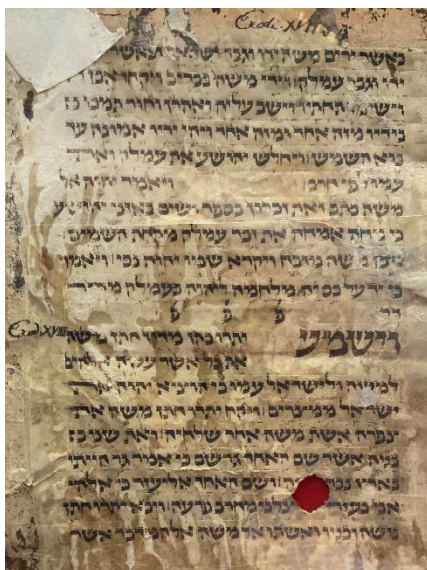 Exodi XVII
כאשר ירים משה ידו וגבר ישראל וכאשר
ידו וגבר עמלק וידי משה כבדים ויקחו אבן
וישימו תחתיו וישב עליה ואהרן וחור תמכו
בידיו מזה אחד ומזה אחד ויהי ידיו אמונה עד
בוא השמש ויחלש יהושע את עמלק ואת
עמו לפי חרב ויאמר יהוה אל
משה כתב זאת זכרון בספר ושים באזני יהושע
כי מחה אמחה את זכר עמלק מתחת השמים
ויבן משה מזבח ויקרא שמו יהוה נסי ויאמר
כי יד על כס יה מלחמה ליהוה בעמלק מדר
דר פ פ פ
Exodi XVIII
וישמע יתרו כהן מדין חתן משה
את כל אשר עשה אלהים
למשה ולישראל עמו כי הוציא יהוה את
ישראל ממצרים ויקח יתרו חתן משה את
צפרה אשת משה אחר שלוחיה ואת שני
בניה אשר שם האחד גרשם כי אמר גר הייתי
בארץ ושם האחד אליעזר כי אלהי
אבי בעזרי מחרב פרעה ויבא יתרו חתן
משה ובניו ואשתו אל משה אל המדבר אשר